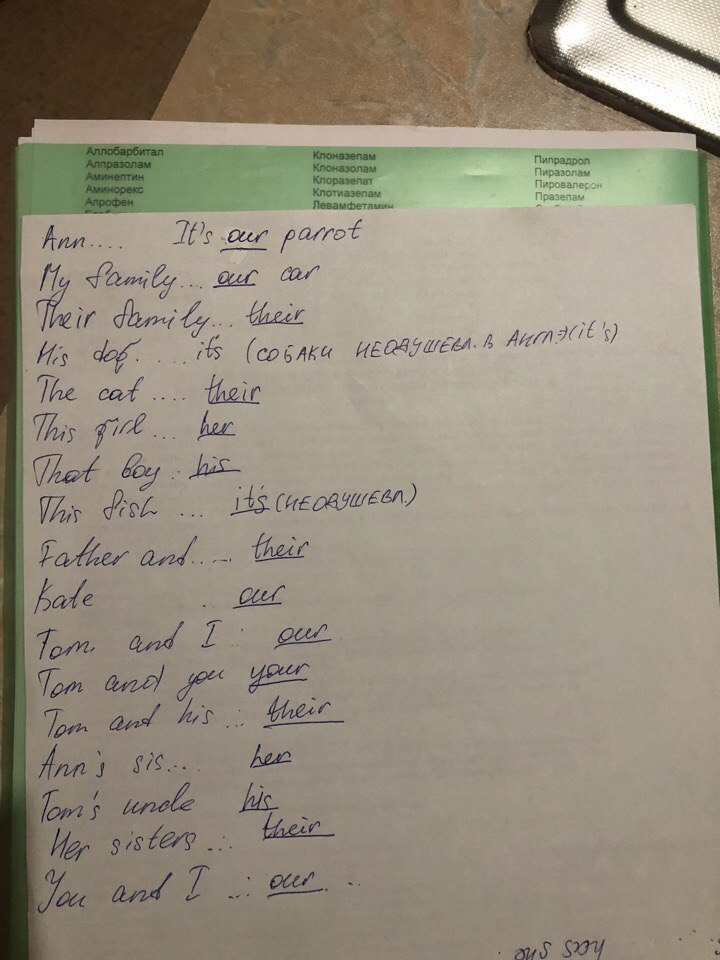 Аллобарбитал
Алпразолам
Аминептин
Аминорекс
Апрофен
Клоназепам
Клоназолам
Клоразепат
Клотиазепам
Левамфетамин
Пипрадрол
Пиразолам
Пировалерон
Празепам
Ann.... It's our parrot
My family... our car
Their family... their
His dog. ... it's (СОБАКИ НЕОДУШЕВЛ. В АНГЛ Э(it's)
The cat .... their
This girl ... her
That boy . his
This fish ... it's (НЕОДУШЕВЛ)
Father and..... their
Kate .. our
Tom. and I : our
Tom and you your
Tom and his ... their
Ann's sis.... her
Tom's uncle his
Her sisters ... their
You and I ... our ..
she